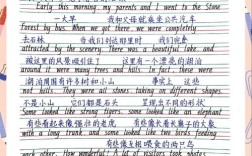 Early this morning, my parents and I went to the Stone
一大早 我和父母就乘坐公共汽车
Forest by bus. When we got there we were completely
去石林 当我们到达那里时 我们
attracted by the scenery. There was a beautiful lake, and
湖这里的风景吸引住了 这里有一个漂亮的湖
around it were many trees and hills. In fact, these were
湖泊周围有许多树和小山 事实上 这些
not hills. They were all stones taking on different shapes.
不是小山 它们都是石头 呈现出不同的形状
Some looked like strong tigers, some looked like an elephant
有些看起来像强壮的老虎 有些像大 长鼻子的大象
with a long trunk, and some looked like two birds feeding
有些像互相喂食的两只鸟
each other. How wonderful! A lot of visitors took photos